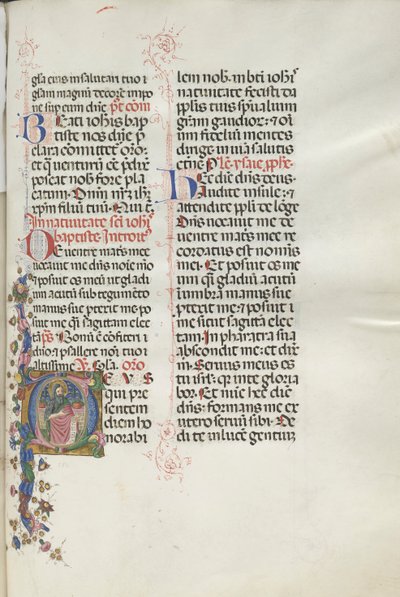 gla eius in salutari tuo ⁊
glam magnū decore impo
ne sup eum dn̄e p̄t com̄
Beati ioh̄is bap
tiste nos dn̄e p̄
clara comitet̄ oro:
et q̄ uentur̄ eē p̄dix̄
poscat nob̄ fore pla
catum. Dn̄m nr̄m ih̄m
xp̄m filiū tuū. Qui t̄.
In natiuitate sc̄i ioh̄is
baptiste Introit̄
De uentre matris mee
uocauit me dn̄s noīe mō
⁊ posuit os meū ut gladi
um acutū sub tegumēto
manus sue ptexit me po
suit me q̄i sagittam elec
tā p̄s Bonū ē cōfiteri d
n̄o: ⁊ psallere nōi tuo
altissime. Gla. oro
Deus
qui pre
sentem
diem ho
norabi
lem nob̄ in bt̄i ioh̄is
natiuitate fecisti da
pp̄lis tuis sp̄ualium
grām gaudior̄: ⁊ oī
um fidelium mentes
dirige in uiā salutis
etn̄e Pl̄e. ysaie pp̄he.
Hec dic̄ dn̄s deus
Audite insule: ⁊
attendite pp̄li de lōge
Dn̄s uocauit me de
uentre matris mee re
cordatus est nom̄is
mei. Et posuit os me
um q̄i gladiū acutū
in umbra manus sue
ptexit me: ⁊ posuit
me sicut sagittā elec
tam. In pharatra sua
abscondit me: et dix̄
m̄. Seruus meus es
tu isr̄l: q̄ in te gloria
bor̄. Et nūc hec dic̄
dn̄s: formans me ex
utero seruū sibi. De
di te in lucē gentiuȝ